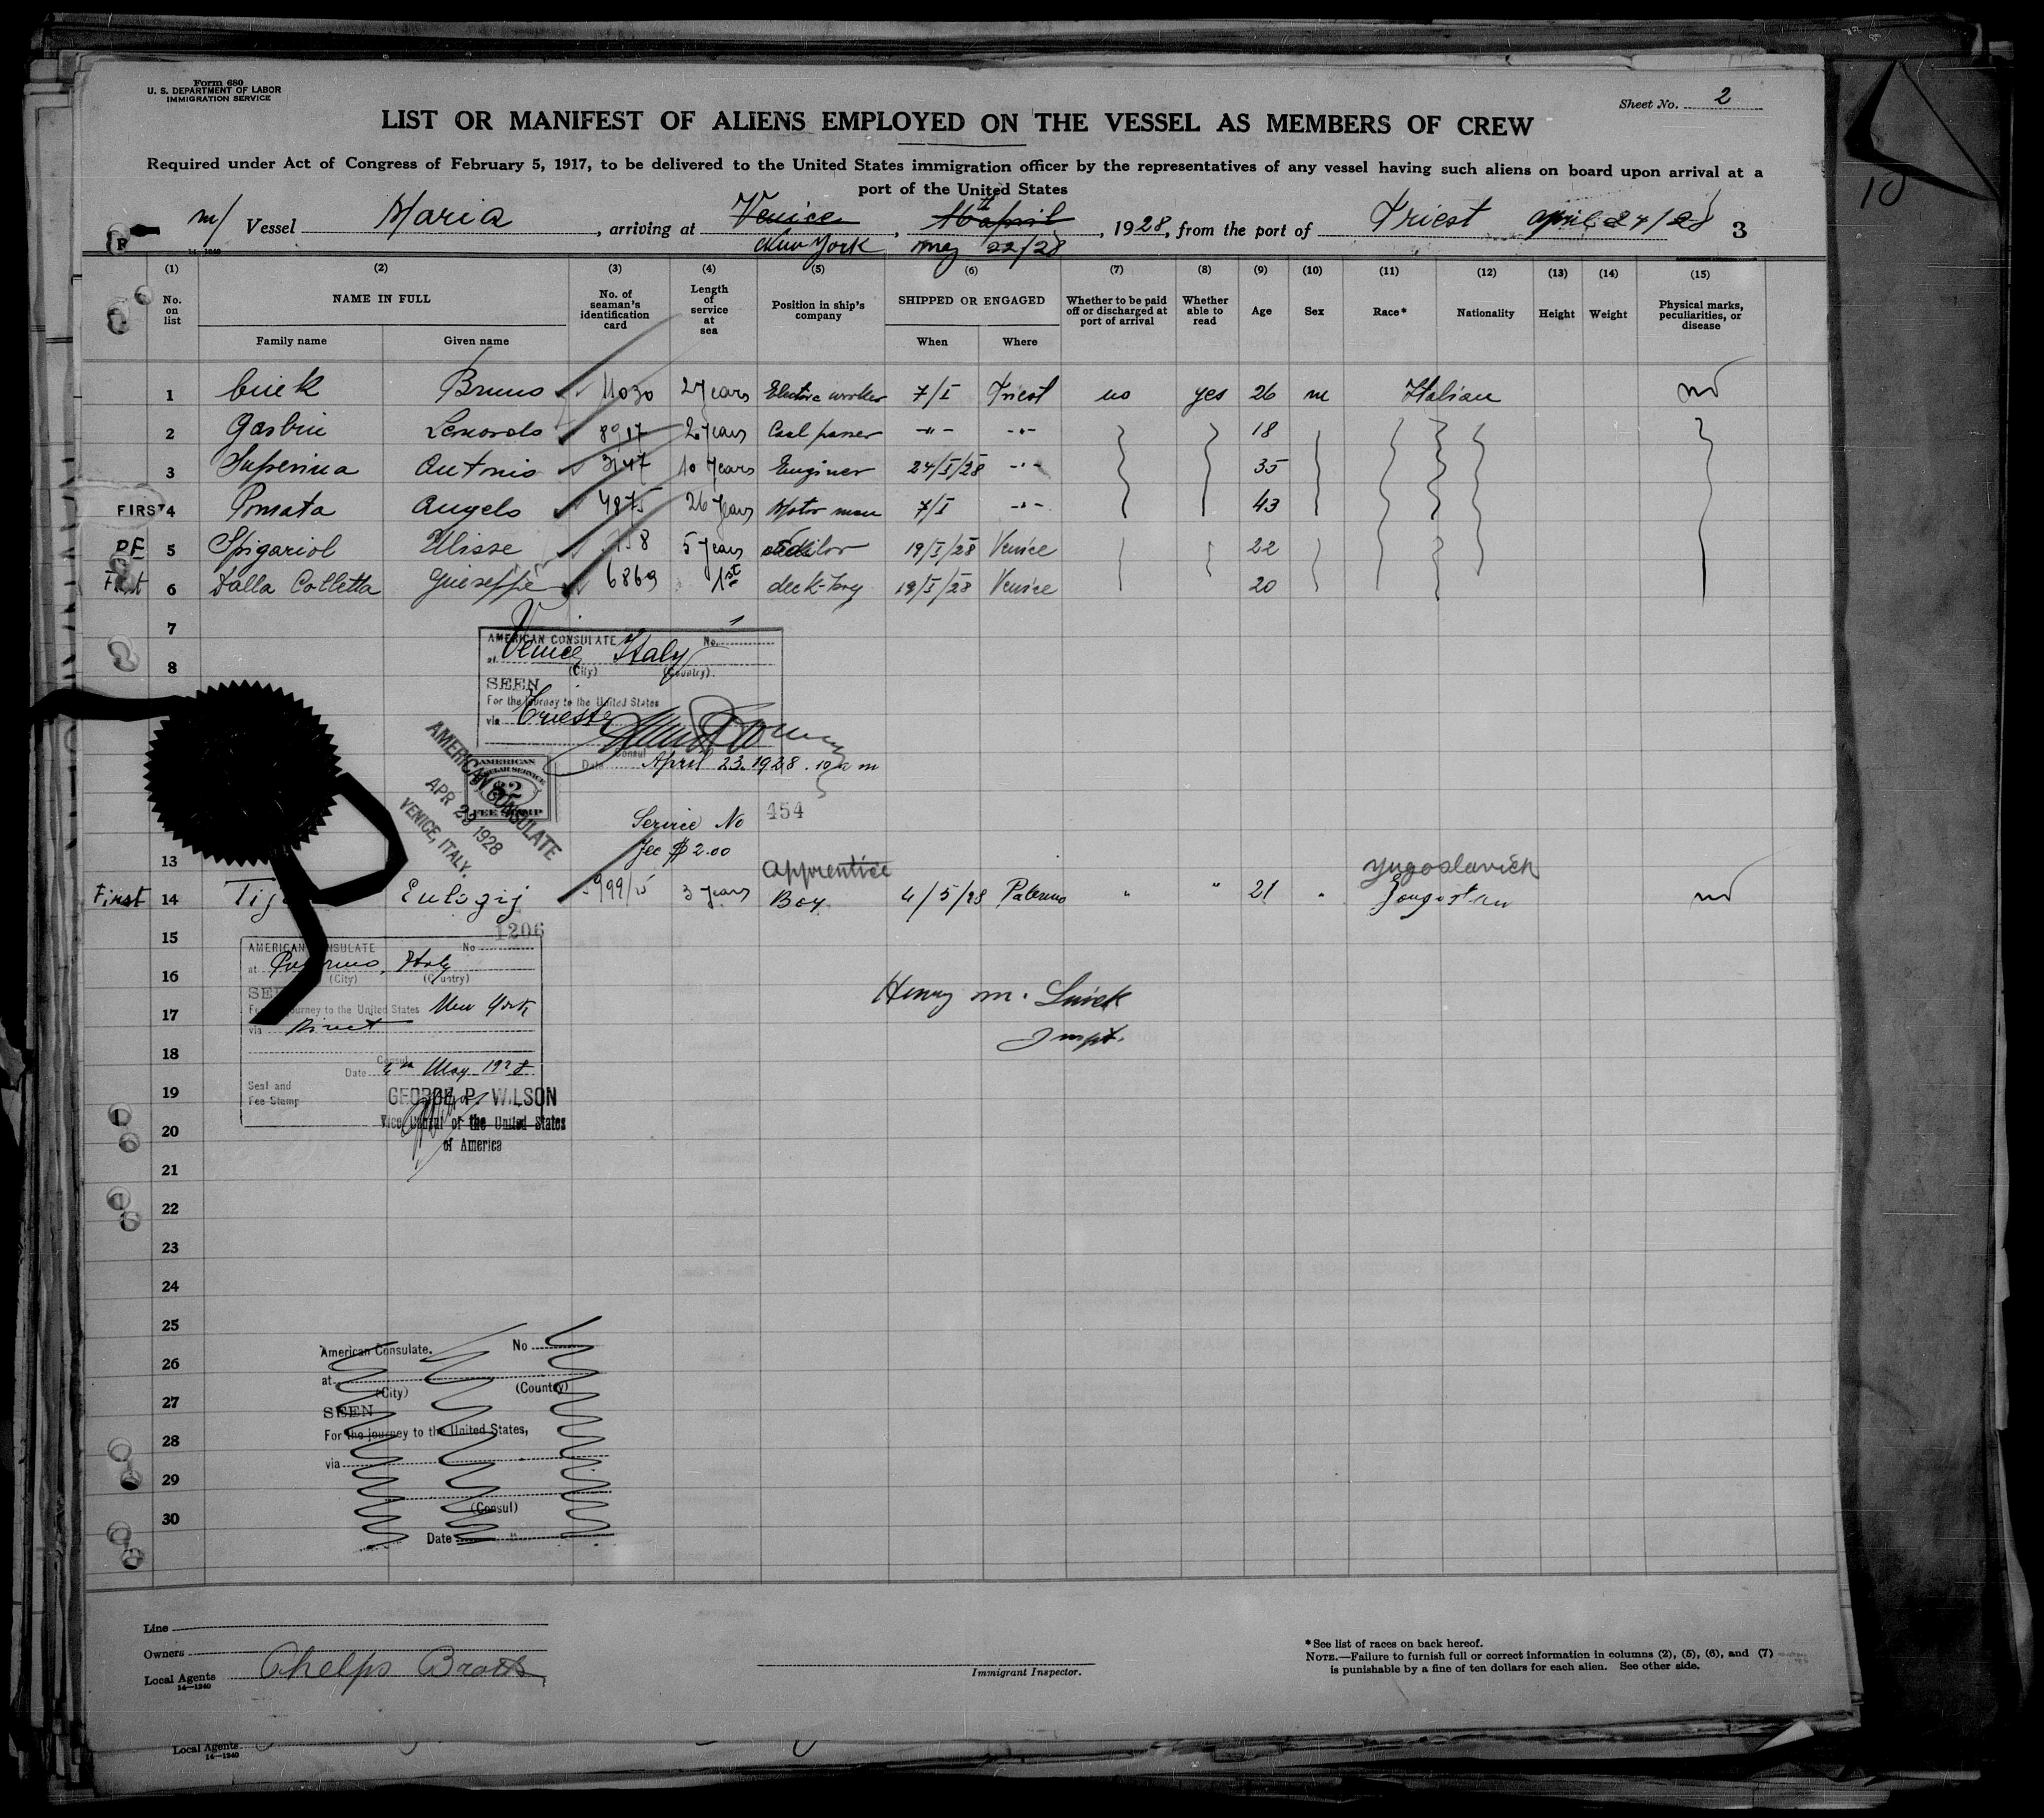 Form 680
U. S. DEPARTMENT OF LABOR
IMMIGRATION SERVICE
Sheet No. 2
LIST OR MANIFEST OF ALIENS EMPLOYED ON THE VESSEL AS MEMBERS OF CREW
Required under Act of Congress of February 5, 1917, to be delivered to the United States immigration officer by the representatives of any vessel having such aliens on board upon arrival at a
port of the United States
m/ Vessel Maria, arriving at Venice, 16th april, 1928, from the port of Triest april 24/28 3
New York may 22/28
14-1240
(1) (2) (3) (4) (5) (6) (7) (8) (9) (10) (11) (12) (13) (14) (15)
No. on list NAME IN FULL No. of seaman's identification card Length of service at sea Position in ship's company SHIPPED OR ENGAGED Whether to be paid off or discharged at port of arrival Whether able to read Age Sex Race* Nationality Height Weight Physical marks, peculiarities, or disease
Family name Given name When Where
1 Bruno 11030 2 years Electric worker 7/I Triest no yes 26 m Italian no
2 Gasbin 8917 2 years Coal passer -"- -"- 18
3 Superina Antonio 3147 10 years Enginer 24/I/28 -"- 35
FIRST 4 Pomata Angelo 4875 26 years Motor man 7/I -"- 43
PF 5 Spigariol Ulisse 5 years 19/I/28 Venice 22
First 6 Dalla Colletta Guiseppe 6869 1st deck-boy 19/I/28 Venice 20
7
8
AMERICAN CONSULATE No. 1
at Venice Italy
(City) (Country)
SEEN
For the journey to the United States
via Trieste
Consul
Date April 23. 1928. 10 a m
AMERICAN CONSULAR SERVICE
$2
FEE STAMP
AMERICAN CONSULATE
APR 23 1928
VENICE, ITALY.
Service No 454
fee $2.00
13 apprentice Yugoslavich
First 14 Eulogij 999/15 3 years Boy 4/5/28 Palermo " " 21 " no
15
1206
AMERICAN CONSULATE No
at Palermo, Italy
16
(City) (Country)
SEEN
Henry m. Smick
For the journey to the United States New York
17
via Direct
Inspt.
18
Consul
Date 4th May 1928
Seal and
Fee Stamp
19
GEORGE P. WILSON
Vice Consul of the United States
20
of America
21
22
23
24
25
American Consulate. No
26
at
(City) (Country)
27
SEEN
For the journey to the United States,
28
via
29
(Consul)
30
Date
Line
Owners
Local Agents Phelps Bros
14-1240
Immigrant Inspector.
*See list of races on back hereof.
NOTE.—Failure to furnish full or correct information in columns (2), (5), (6), and (7)
is punishable by a fine of ten dollars for each alien. See other side.
Local Agents
14-1240
10